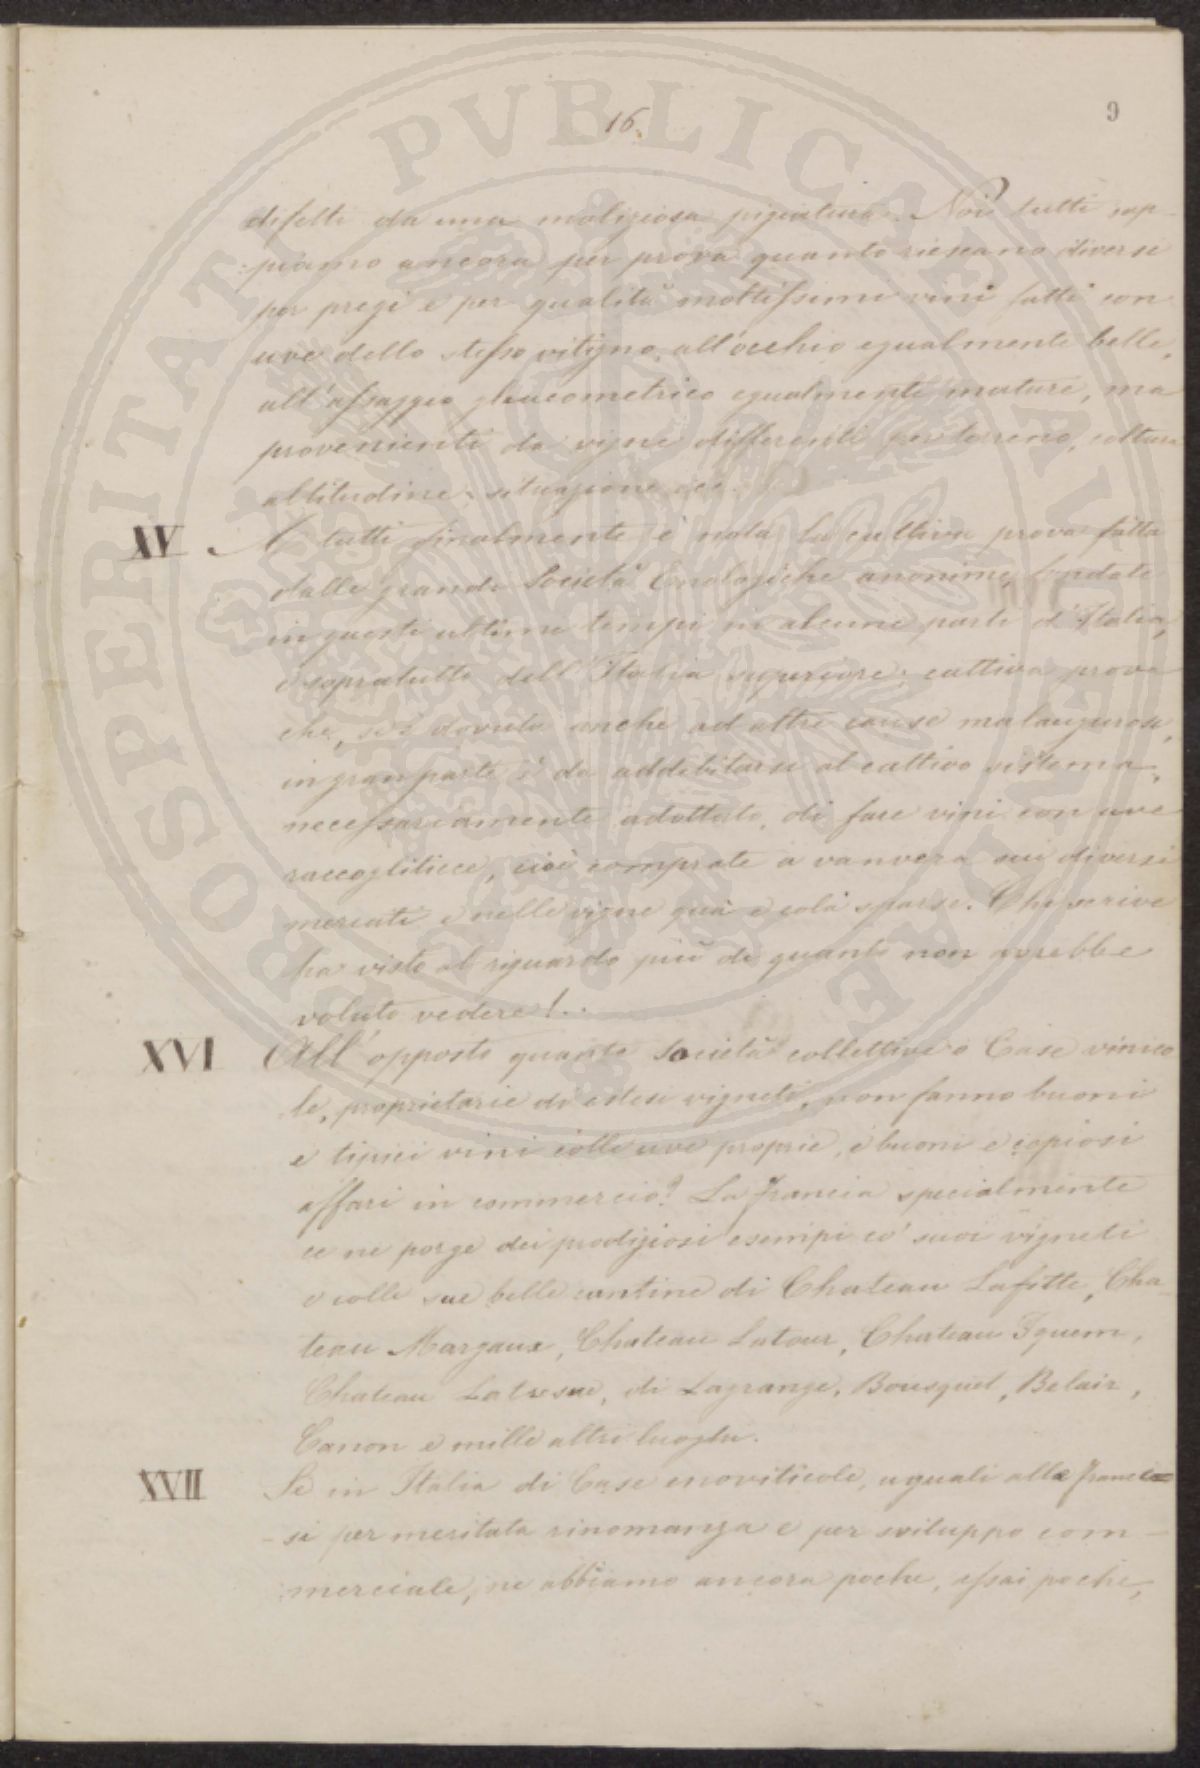 16.
9
difetti da una maliziosa pigiatura. Noi tutti sap-
piamo ancora per prova quanto riescano diversi
per pregi e per qualità moltissimi vini fatti con
uve dello stesso vitigno, all'occhio egualmente belle,
all'assaggio glucometrico egualmente mature, ma
provenienti da vigne differenti per terreno, coltura
altitudine, situazione ecc.
XV A tutti finalmente è nota la cattiva prova fatta
dalle grandi Società Enologiche anonime, fondate
in questi ultimi tempi in alcune parti d'Italia,
e sopratutto dell'Italia superiore; cattiva prova
che, se è dovuta anche ad altre cause malaugurose,
in gran parte è da addebitarsi al cattivo sistema,
necessariamente adottato, di fare vini con uve
raccogliticce, cioè comprate a vanvera sui diversi
mercati e nelle vigne quà e colà sparse. Chi scrive
ha visto al riguardo più di quanto non avrebbe
voluto vedere!..
XVI All'opposto quante Società collettive o Case vinico
le, proprietarie di estesi vigneti, non fanno buoni
e tipici vini colle uve proprie, e buoni e copiosi
affari in commercio? La Francia specialmente
ce ne porge dei prodigiosi esempi co' suoi vigneti
e colle sue belle cantine di Chateau Lafitte, Cha-
teau Margaux, Chateau Latour, Chateau Iquem,
Chateau Latresne, di Lagrange, Bousquet, Belair,
Canon e mille altri luoghi.
XVII Se in Italia di Case enoviticole, uguali alle france
-si per meritata rinomanza e per sviluppo com-
merciale, ne abbiamo ancora poche, assai poche,
PVBLICAE AVCTOR
PROSPERITATI